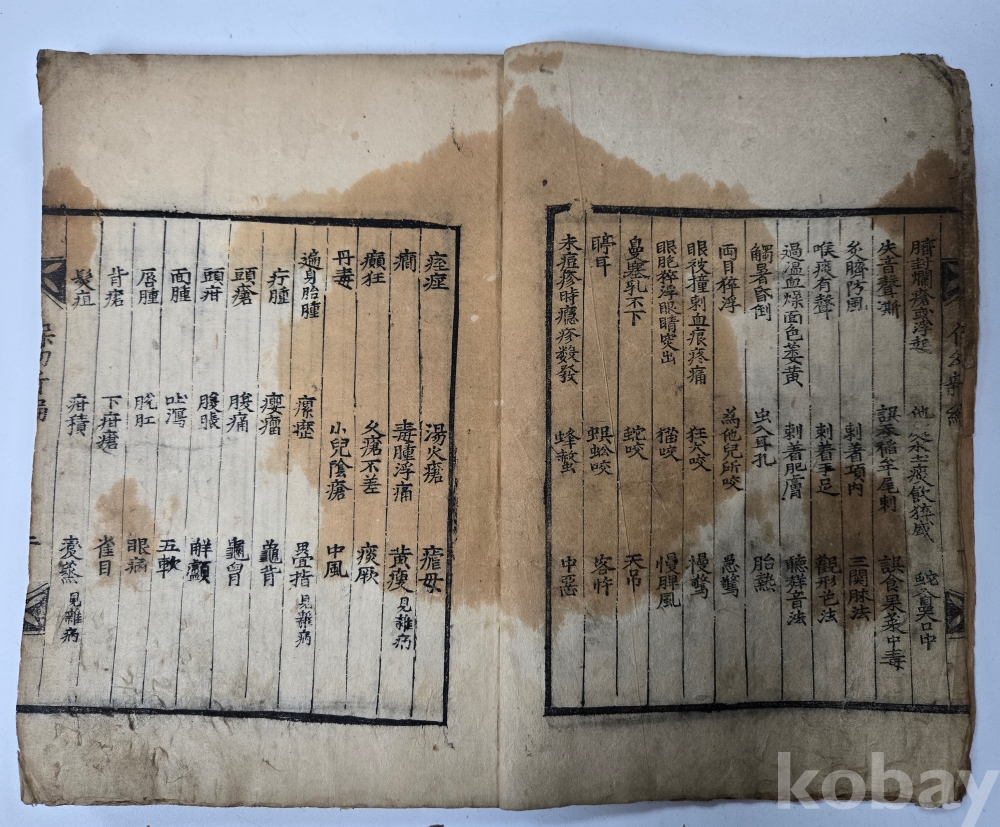 臍封爛瘡或浮起
蛇入鼻口中
失音聲澌
誤呑稻芒尾刺
誤食果菜中毒
灸臍防風
刺着項內
三関脉法
喉痰有聲
刺着手足
觀形色法
過溫血燥面色萎黃
刺着肥膚
聽聲音法
觸暑昏倒
虫入耳孔
胎熱
両目猝浮
為他兒所咬
急驚
眼役撞刺血痕疼痛
狂犬咬
慢驚
眼胞猝浮眼睛突出
猫咬
慢脾風
鼻塞乳不下
蛇咬
天吊
聤耳
蜈蚣咬
客忤
未痘疹時癮疹数發
蜂螫
中惡
痓痙
湯火瘡
瘧母
癎
毒腫浮痛
黃瘦見雜病
癲狂
久瘡不差
痰厥
丹毒
小兒陰瘡
中風
遍身胎腫
瘰癧
疊指見雜病
疔腫
癭瘤
龜背
頭瘡
腹痛
龜胷
頭疳
腹脹
觧顱
面腫
吐瀉
五軟
唇腫
脫肛
眼病
背瘡
下疳瘡
雀目
髮疽
疳積
變蒸見雜病
kobay